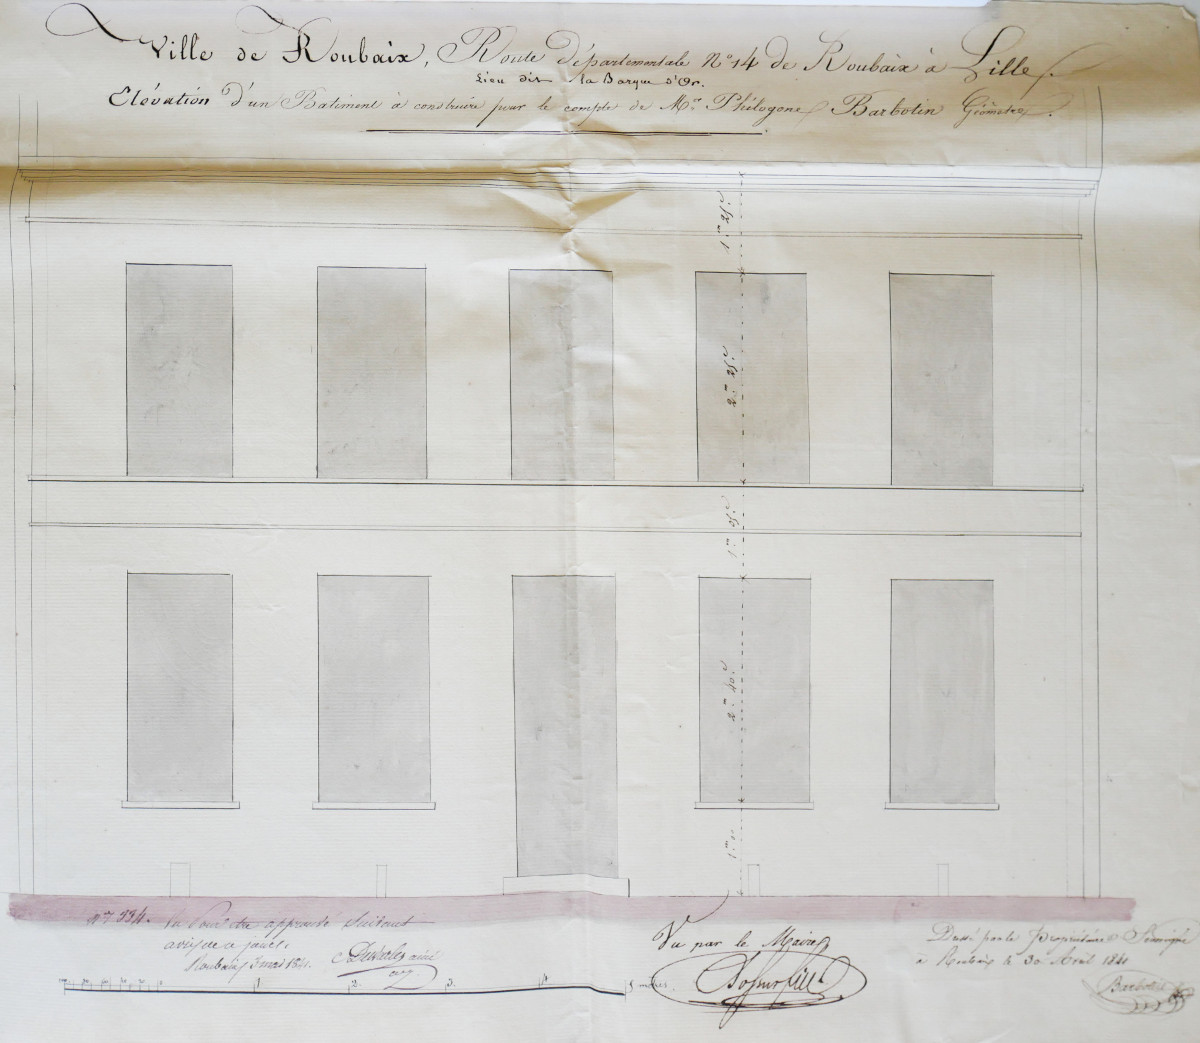 Ville de Roubaix, Route Départementale N° 14 de Roubaix à Lille.
Lieu dit la Barque d'Or.
Elévation d'un Batiment à construire pour le compte de Mr. Philogone Barbotin Géomètre.
1m 25c
2m 25c
1m 05c
2m 40c
1m 0
n° 334. Vu Pour être approuvé Suivant
avis de ce jour.
Roubaix 3 mai 1841.
Vu par le Maire
Dressé par le Propriétaire Soussigné
à Roubaix le 30 Avril 1841
Barbotin
1 2. 3. 4 5 metres.